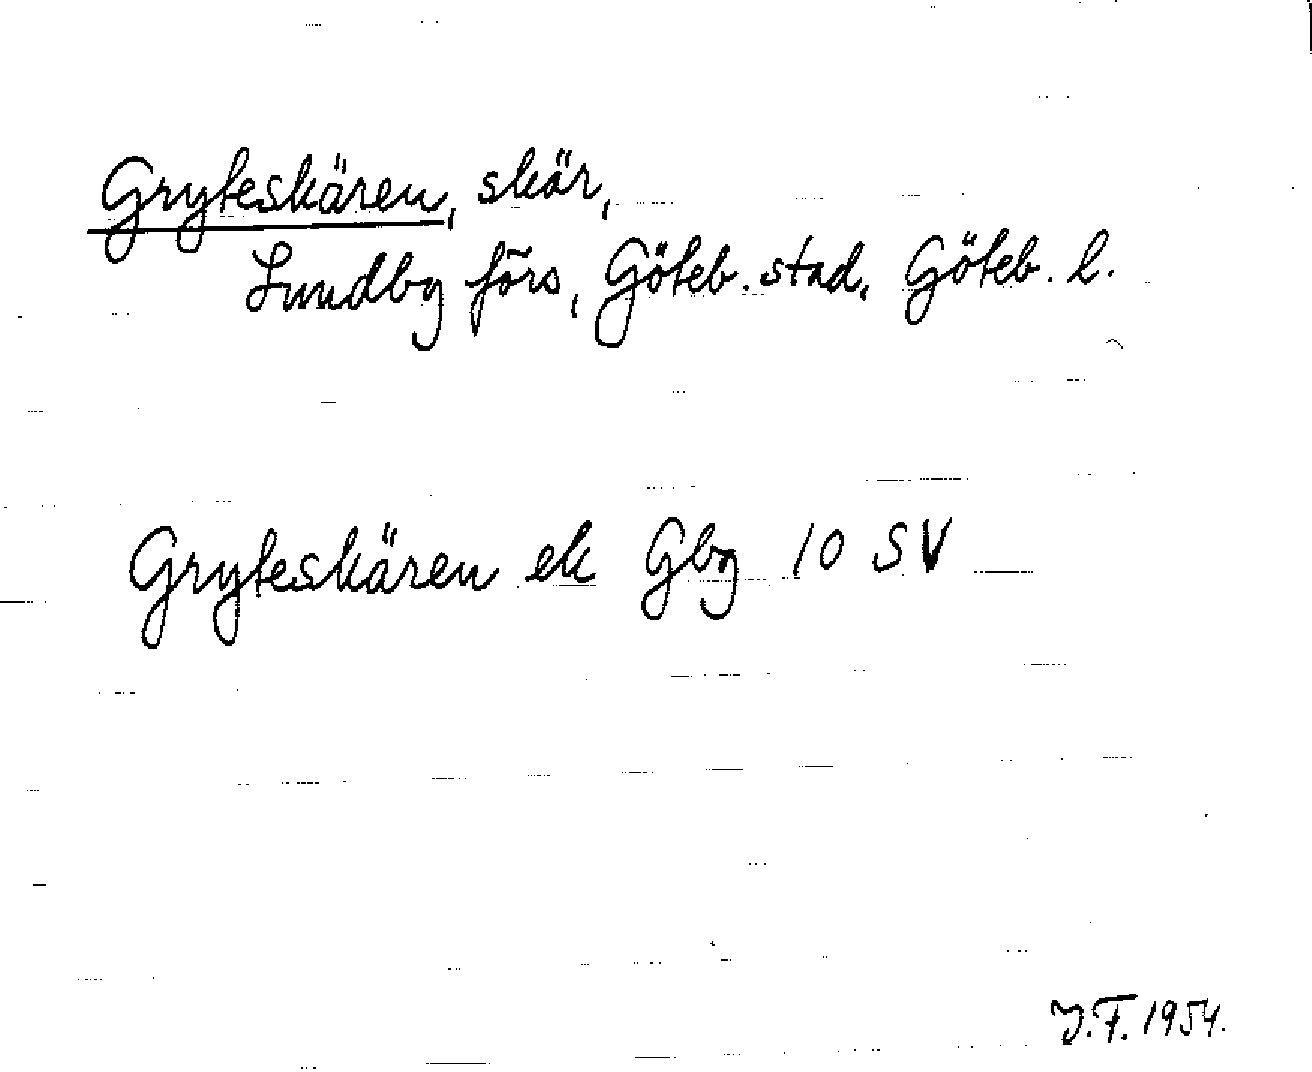 Gryteskären, skär,
Lundby förs, Göteb. stad, Göteb. l.
Gryteskären ek Gbg 10 SV
J.F. 1954.